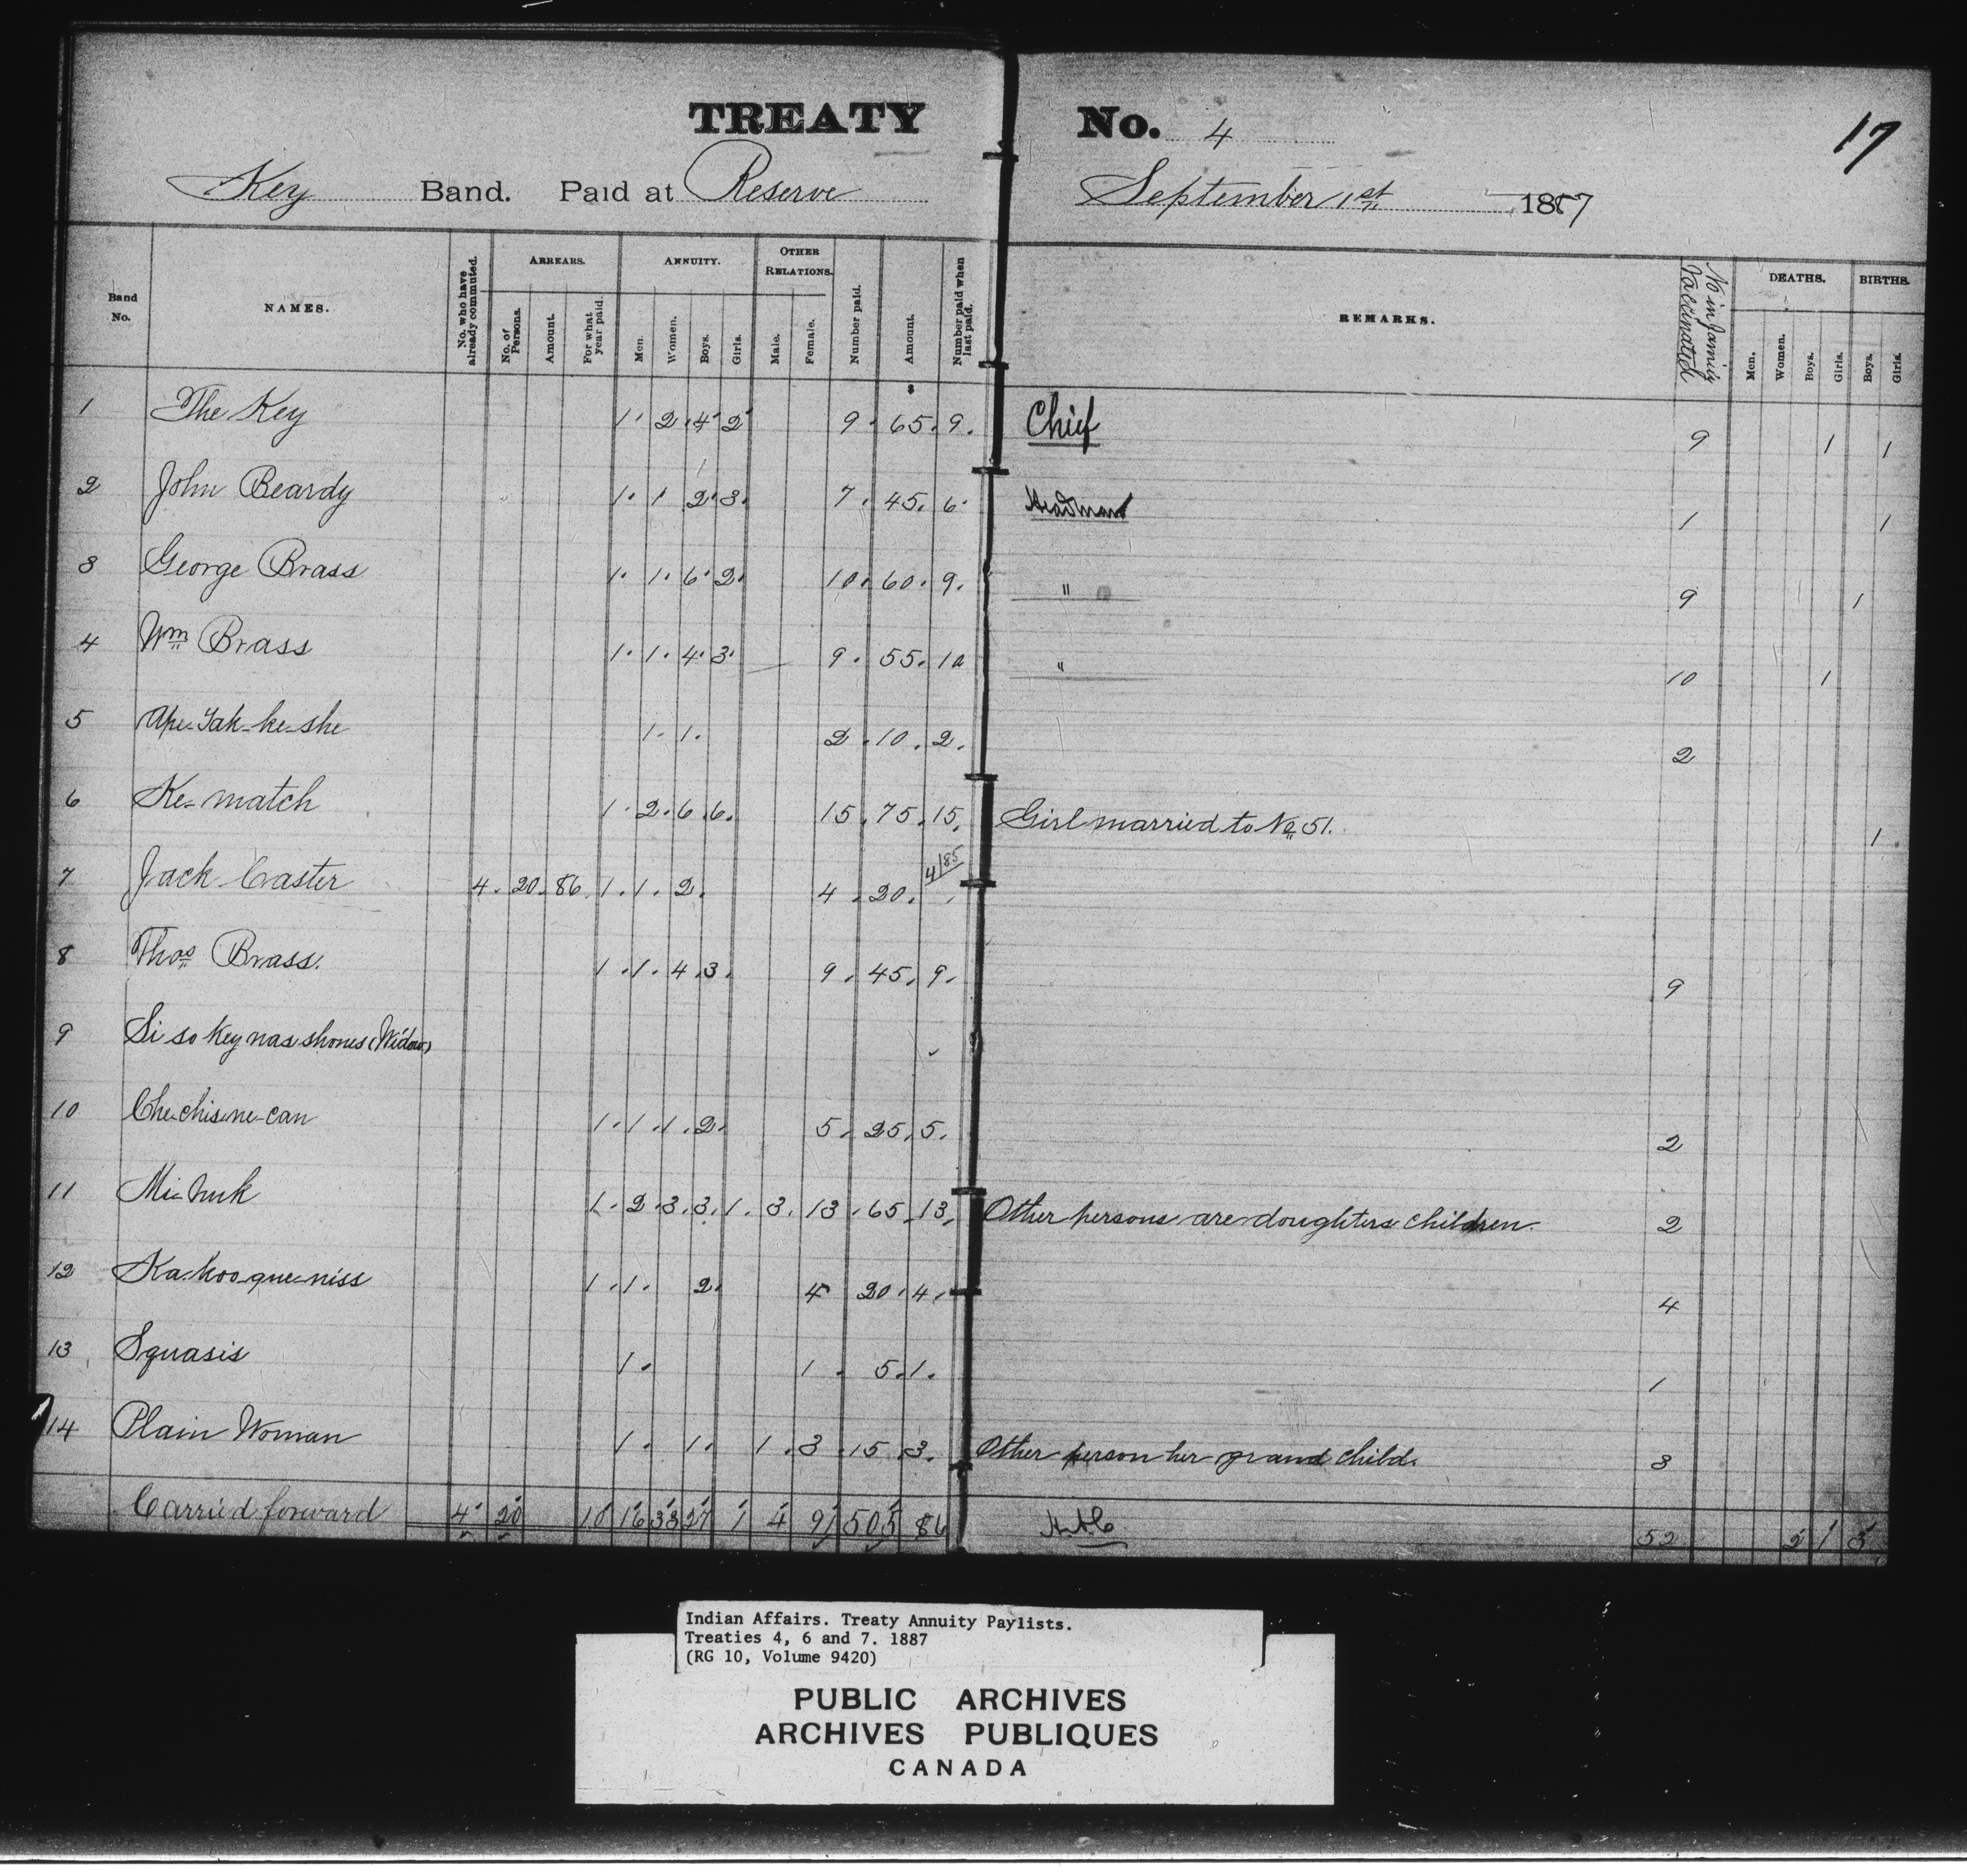 TREATY No. 4
17
Key Band. Paid at Reserve September 1st 1887
Band No. NAMES. No. who have already commuted. ARREARS. No. of Persons. Amount. For what year paid. ANNUITY. Men. Women. Boys. Girls. OTHER RELATIONS. Male. Female. Number paid. Amount. Number paid when last paid. REMARKS. No in family Vaccinated DEATHS. Men. Women. Boys. Girls. BIRTHS. Boys. Girls.
$
1 The Key 1 2 4 2 9 65 9 Chief 9 1 1
2 John Beardy 1 1 2 3 7 45 6 Headman 1 1
3 George Brass 1 1 6 2 10 60 9 " 9 1
4 Wm Brass 1 1 4 3 9 55 10 " 10 1
5 Ape-Yah-ke-she 1 1 2 10 2 2
6 Ke-match 1 2 6 6 15 75 15 Girl married to No 51. 1
7 Jack Caster 4 20 86 1 1 2 4 20 4/85
8 Thos Brass. 1 1 4 3 9 45 9 9
9 Si so key nas shones (Widow)
10 Che-chis-ne-can 1 1 1 2 5 25 5 2
11 1 2 3 3 1 3 13 65 13 Other persons are doughters children. 2
12 Ka-koo-que-niss 1 1 2 4 20 4 4
13 Squasis 1 1 5 1 1
14 Plain Woman 1 1 1 3 15 3 Other person her grand child. 3
Carried forward 4 20 10 16 33 27 1 4 91 505 86 52 2 1 3
Indian Affairs. Treaty Annuity Paylists.
Treaties 4, 6 and 7. 1887
(RG 10, Volume 9420)
PUBLIC ARCHIVES
ARCHIVES PUBLIQUES
CANADA